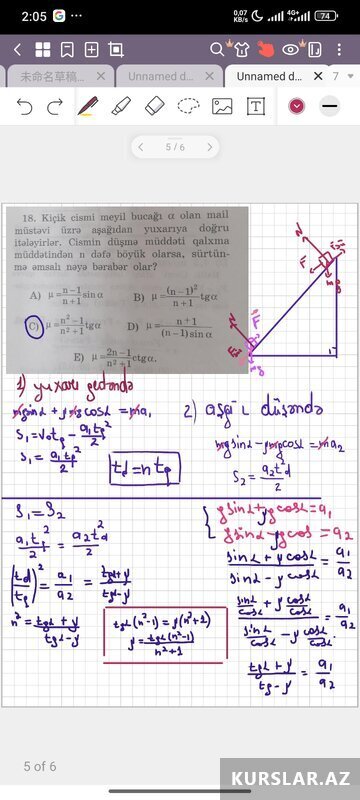 2:05
0,07 KB/s
4G+
74
未命名草稿...
Unnamed d...
Unnamed d...
7
5 / 6
18. Kiçik cismi meyil bucağı α olan mail
müstəvi üzrə aşağıdan yuxarıya doğru
itələyirlər. Cismin düşmə müddəti qalxma
müddətindən n dəfə böyük olarsa, sürtün-
mə əmsalı nəyə bərabər olar?
A) μ = (n−1)/(n+1) sin α B) μ = (n−1)²/(n+1) tg α
C) μ = (n²−1)/(n²+1) tg α D) μ = (n+1)/((n−1) sin α)
E) μ = (2n−1)/(n²+1) ctg α.
1) yuxarı gedəndə
mg sinα + μmg cosα = ma₁
S₁ = V₀t_q − a₁t_q²/2
S₁ = a₁t_q²/2
t_d = n t_q
2) aşağı düşəndə
mg sinα − μmg cosα = ma₂
S₂ = a₂t_d²/2
S₁ = S₂
a₁t_q²/2 = a₂t_d²/2
(t_d/t_q)² = a₁/a₂ = (tgα+μ)/(tgα−μ)
n² = (tgα+μ)/(tgα−μ)
tgα(n²−1) = μ(n²+1)
μ = tgα(n²−1)/(n²+1)
{ g sinα + μg cosα = a₁
g sinα − μg cosα = a₂
(sinα + μ cosα)/(sinα − μ cosα) = a₁/a₂
(sinα/cosα + μ cosα/cosα)/(sinα/cosα − μ cosα/cosα) = a₁/a₂
(tgα + μ)/(tg − μ) = a₁/a₂
5 of 6
KURSLAR.AZ